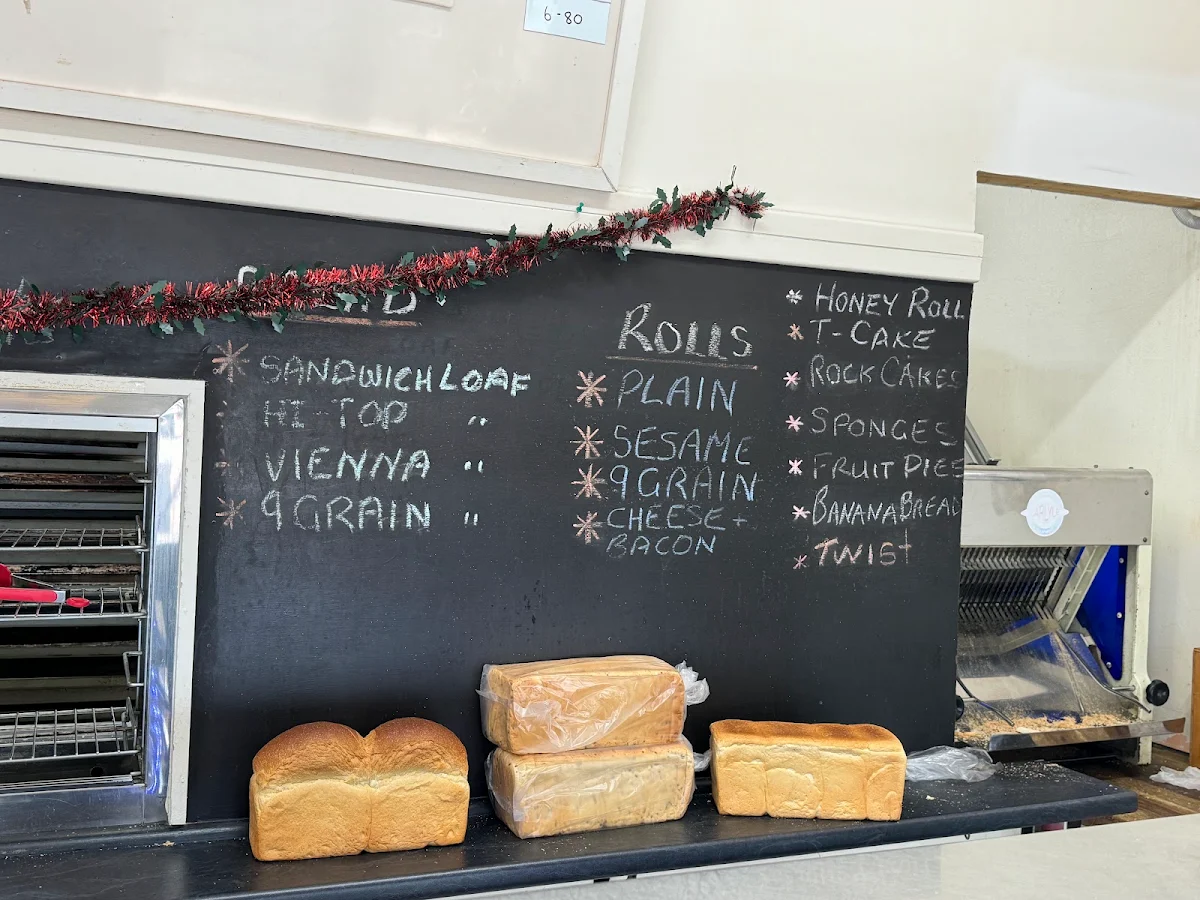 6-80
SANDWICH LOAF
HI-TOP "
VIENNA "
9 GRAIN "
ROLLS
PLAIN
SESAME
9 GRAIN
CHEESE +
BACON
HONEY ROLL
T-CAKE
ROCK CAKES
SPONGES
FRUIT PIES
BANANA BREAD
TWIST